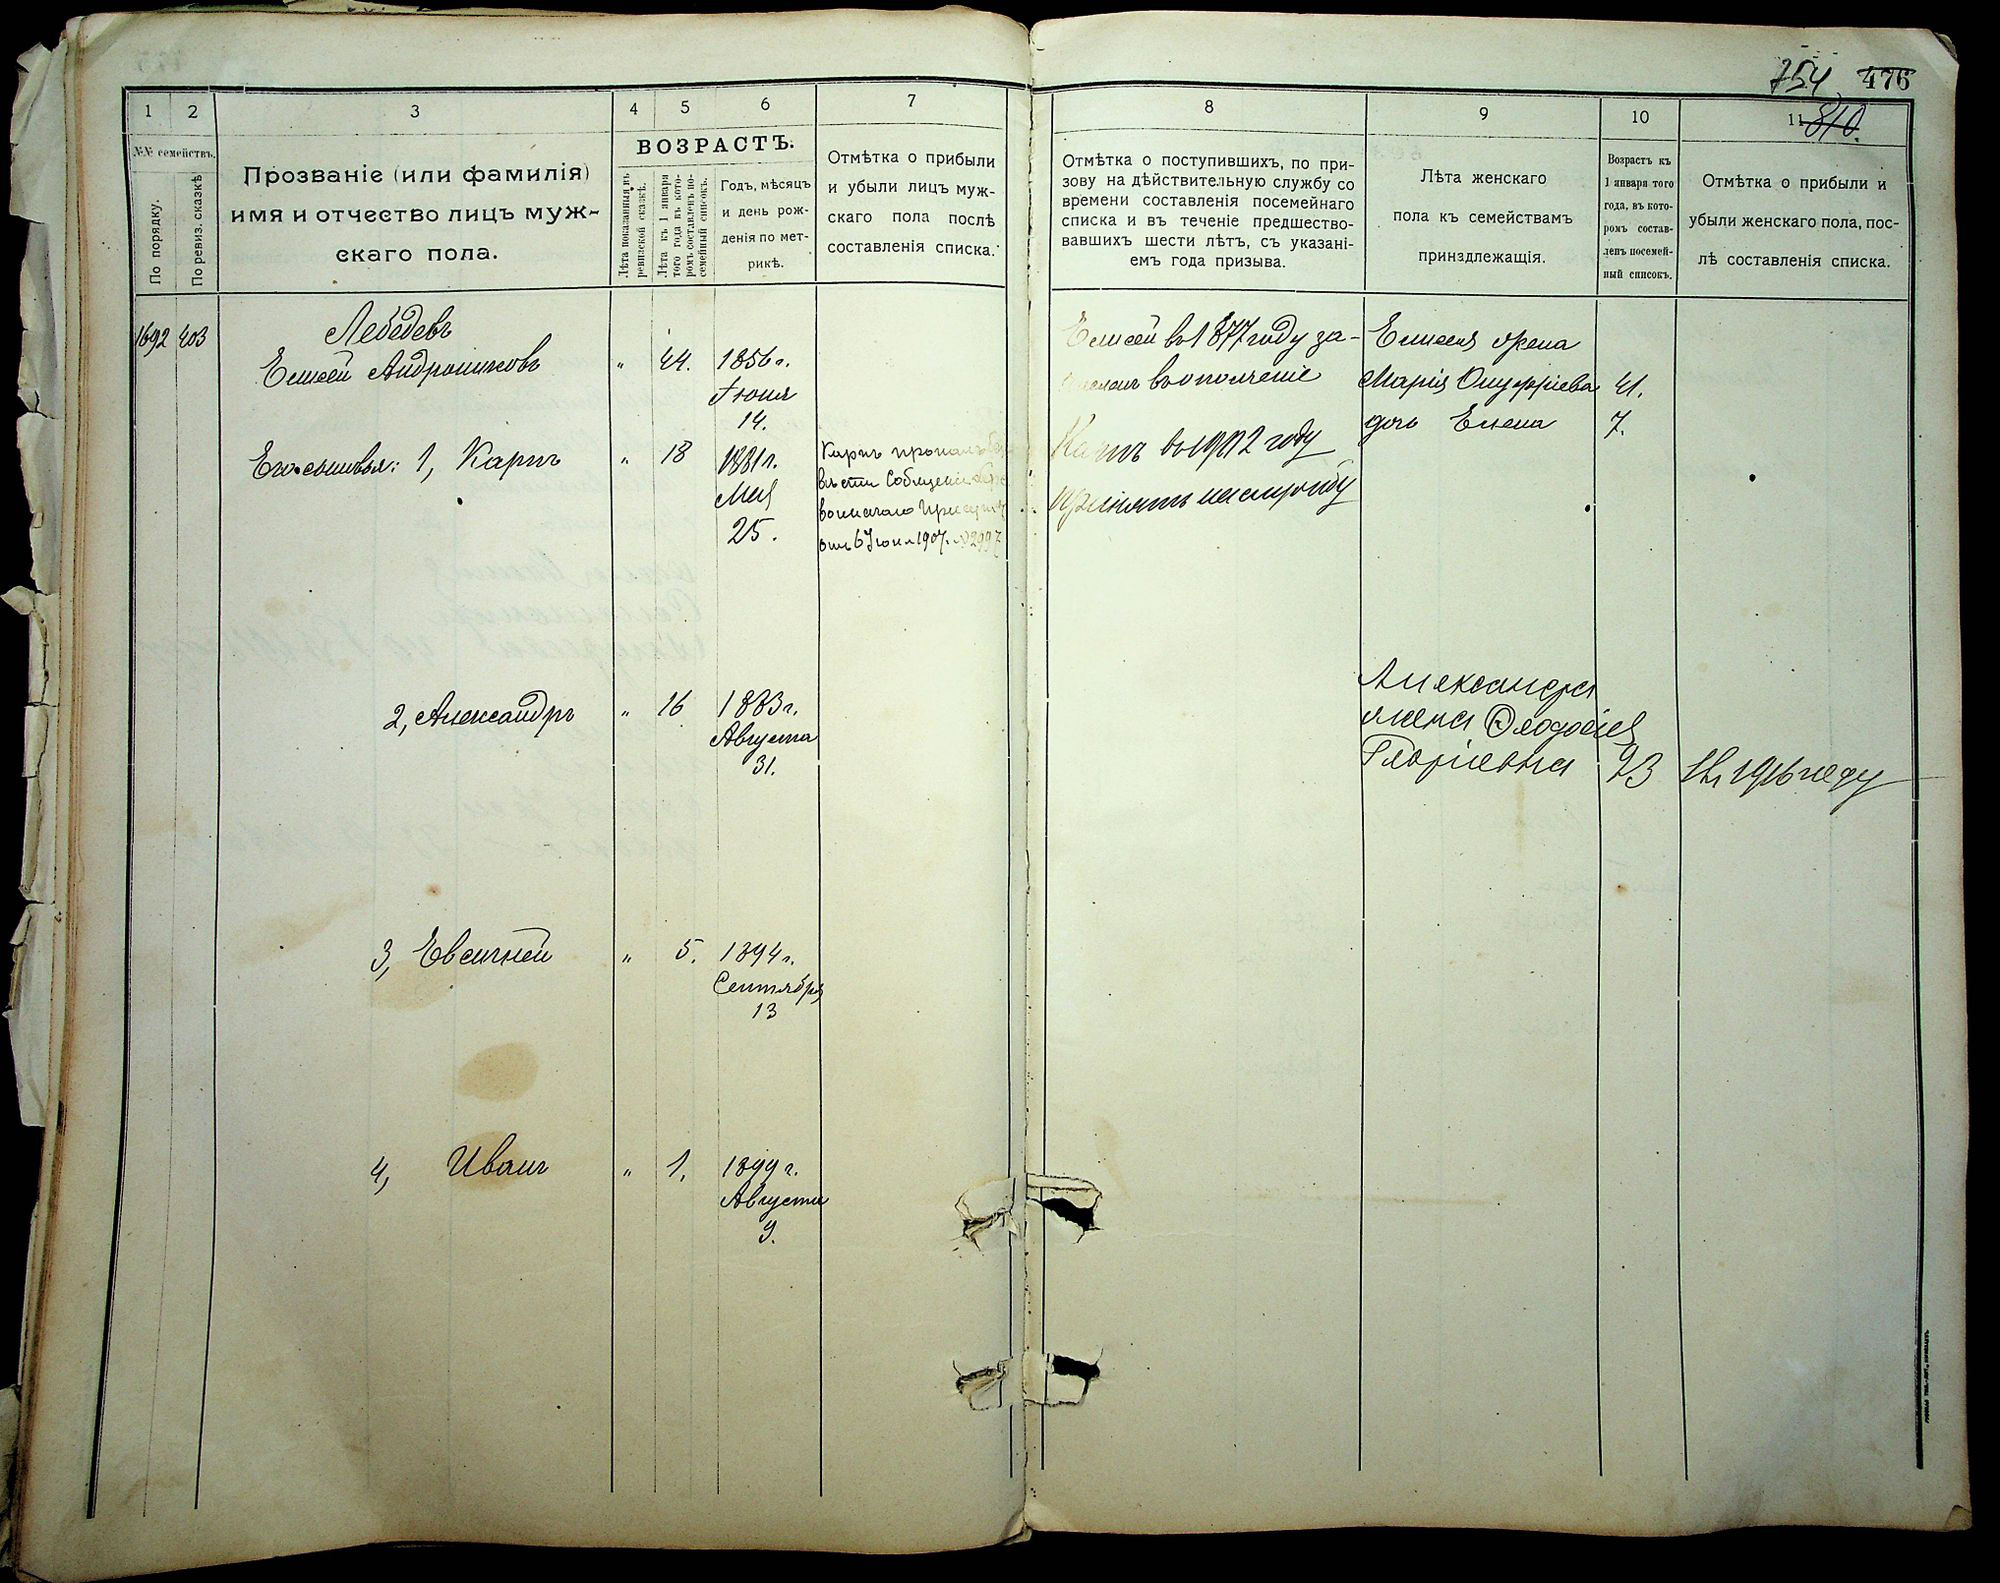 754 476
1 2 3 4 5 6 7 8 9 10 11
810.
№№ семействъ.
По порядку.
По ревиз. сказкѣ
Прозваніе (или фамилія)
имя и отчество лицъ муж-
скаго пола.
ВОЗРАСТЪ.
Лѣта показанныя въ
ревизской сказкѣ.
Лѣта къ 1 января
того года въ кото-
ромъ составленъ по-
семейный списокъ.
Годъ, мѣсяцъ
и день рож-
денія по мет-
рикѣ.
Отмѣтка о прибыли
и убыли лицъ муж-
скаго пола послѣ
составленія списка.
Отмѣтка о поступившихъ, по при-
зову на дѣйствительную службу со
времени составленія посемейнаго
списка и въ теченіе предшество-
вавшихъ шести лѣтъ, съ указані-
емъ года призыва.
Лѣта женскаго
пола къ семействамъ
принздлежащія.
Возрастъ къ
1 января того
года, въ кото-
ромъ состав-
ленъ посемей-
ный списокъ.
Отмѣтка о прибыли и
убыли женскаго пола, пос-
лѣ составленія списка.
1692 403
Лебедевъ
Елисей Андрониковъ " 44. 1856 г.
Іюня
14.
Его сыновья: 1, Карпъ " 18 1881 г.
Мая
25.
Карпъ пропалъ без
вѣсти Сообщеніе
воинскаго Присутст
отъ 6 Іюня 1907 г. №2997
Елисей въ 1877 году за-
въ ополченіе
Карпъ въ 1902 году
принятъ на службу
Елисея жена
Марія Онуфріева 41.
дочь Елена 7.
2, Александръ " 16 1883 г.
Августа
31.
Александра
жена Феодосія
Георгіевна 23 въ 1916 году
3, Евсигней " 5. 1894 г.
Сентября
13
4, Иванъ " 1. 1899 г.
Августа
9.